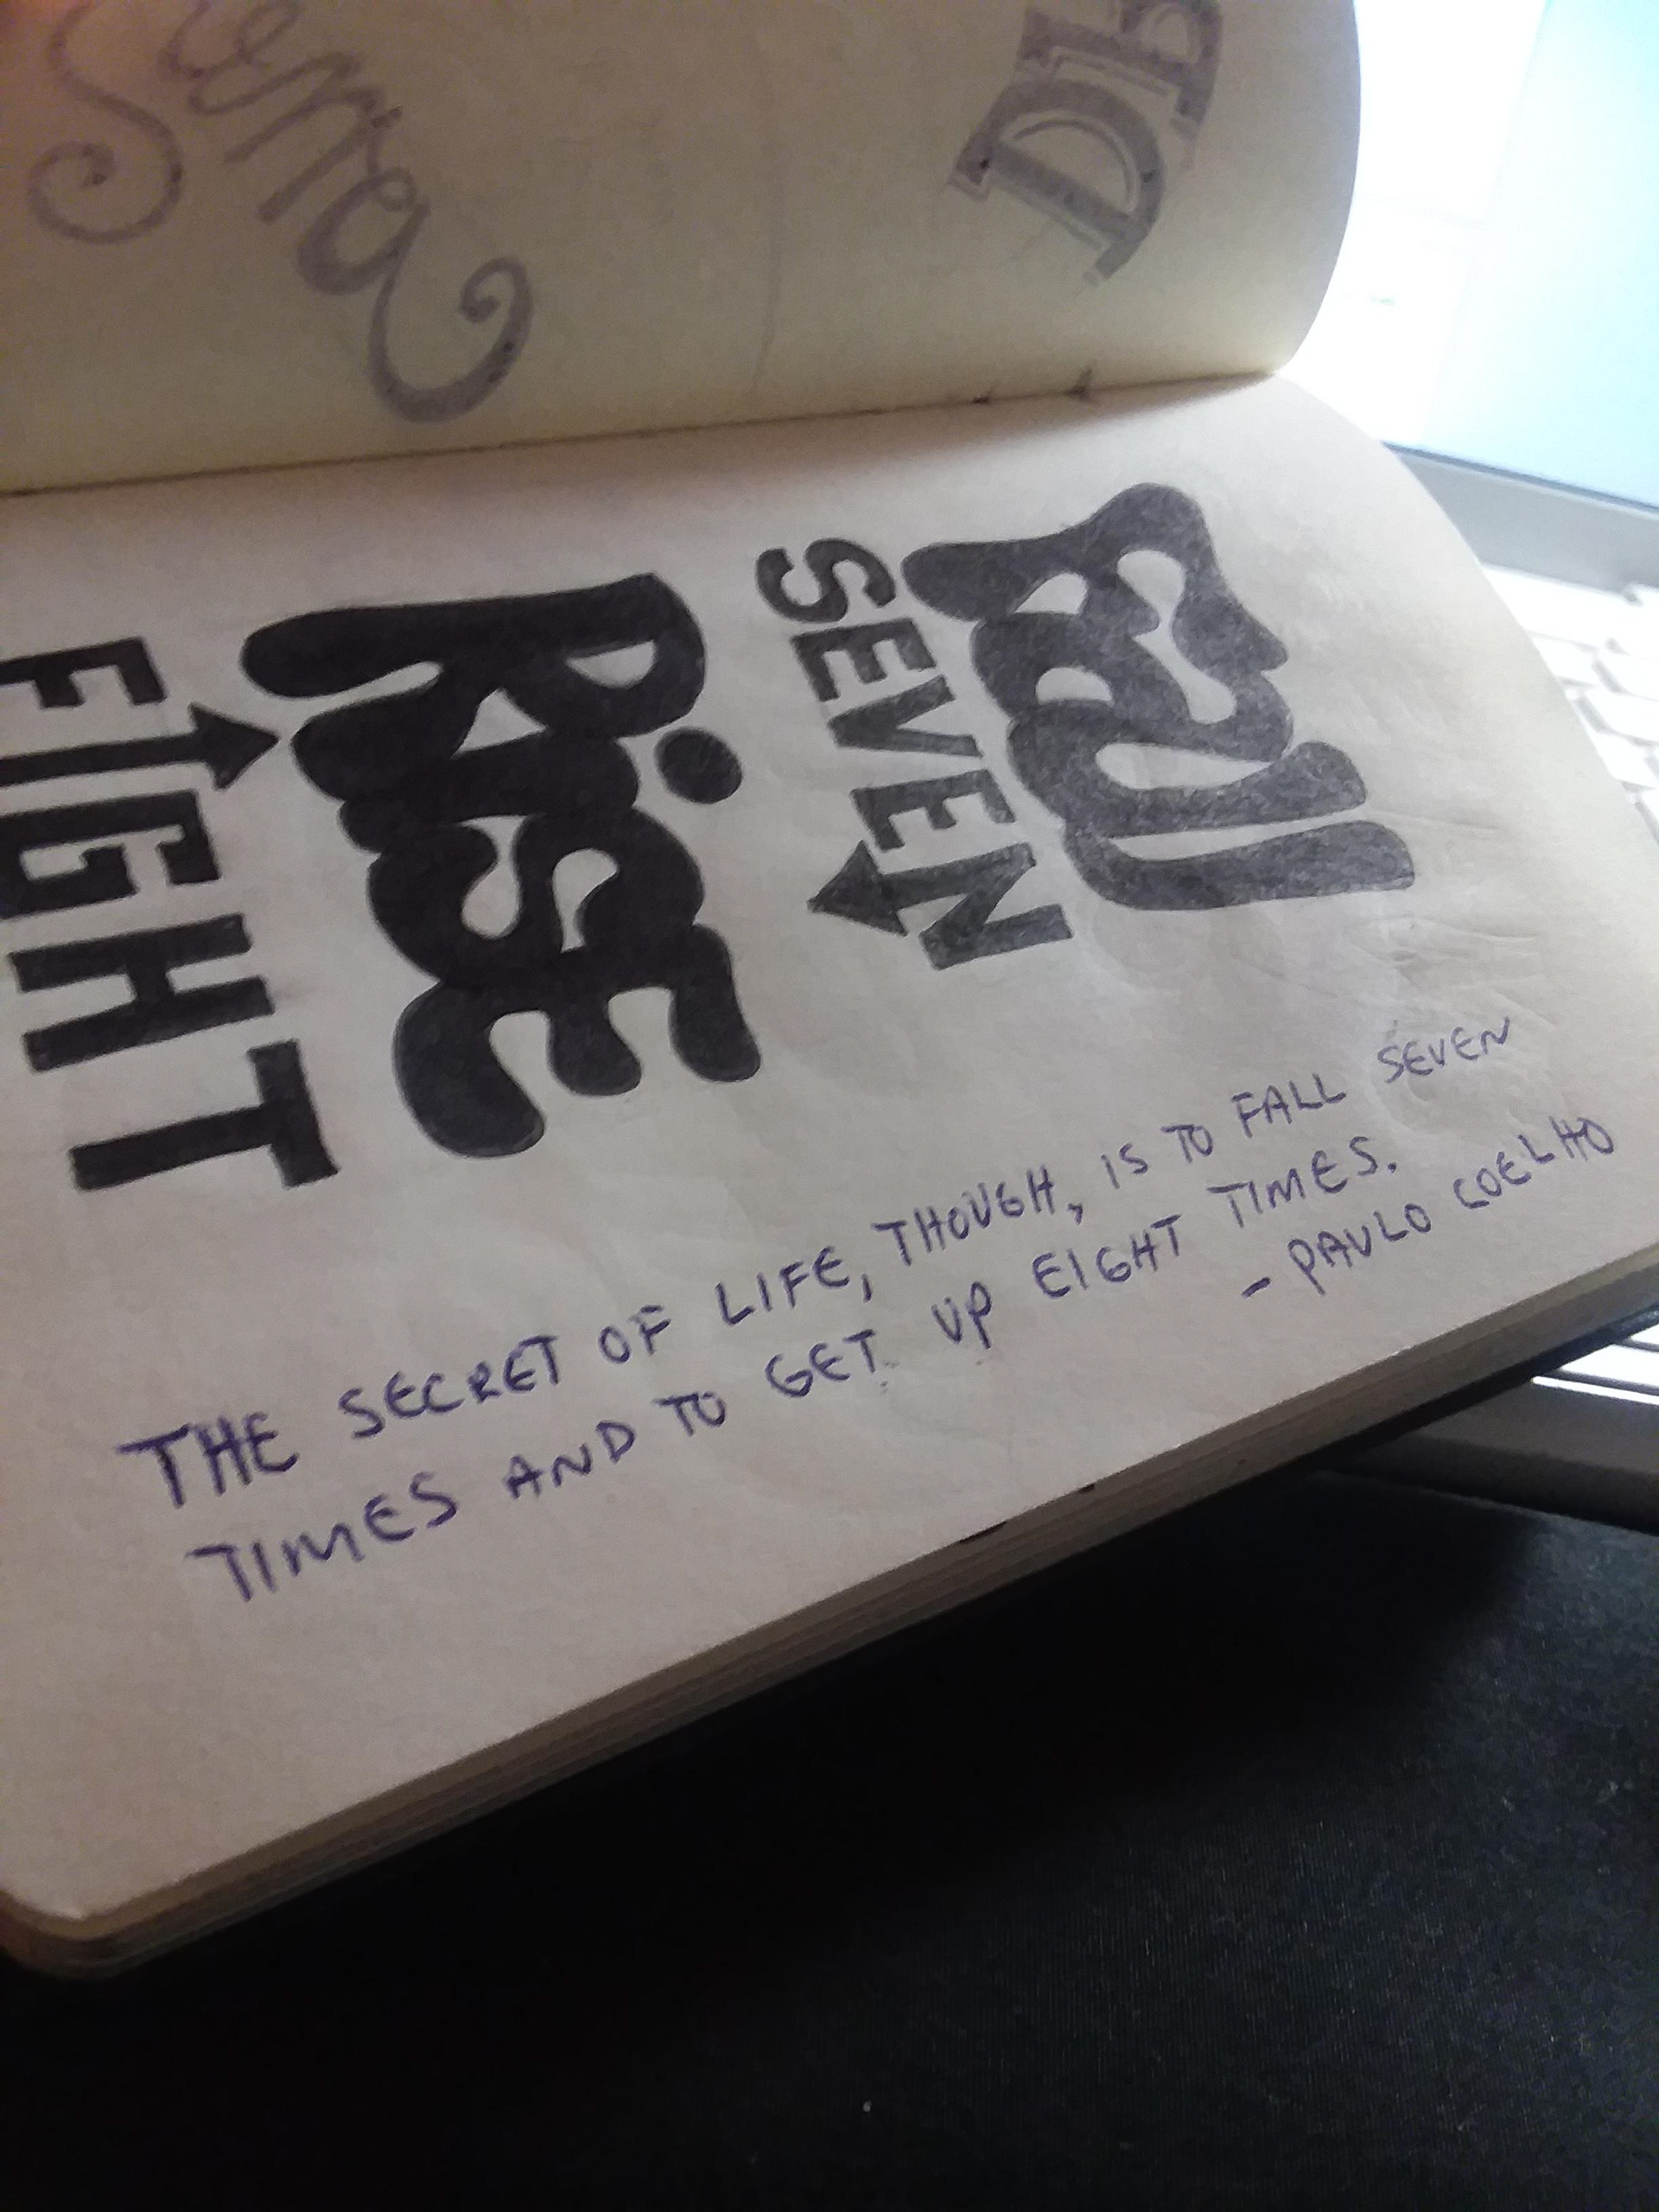 Fall
SEVEN
RiSE
EIGHT
THE SECRET OF LIFE, THOUGH, IS TO FALL SEVEN
TIMES AND TO GET UP EIGHT TIMES.
- PAULO COELHO